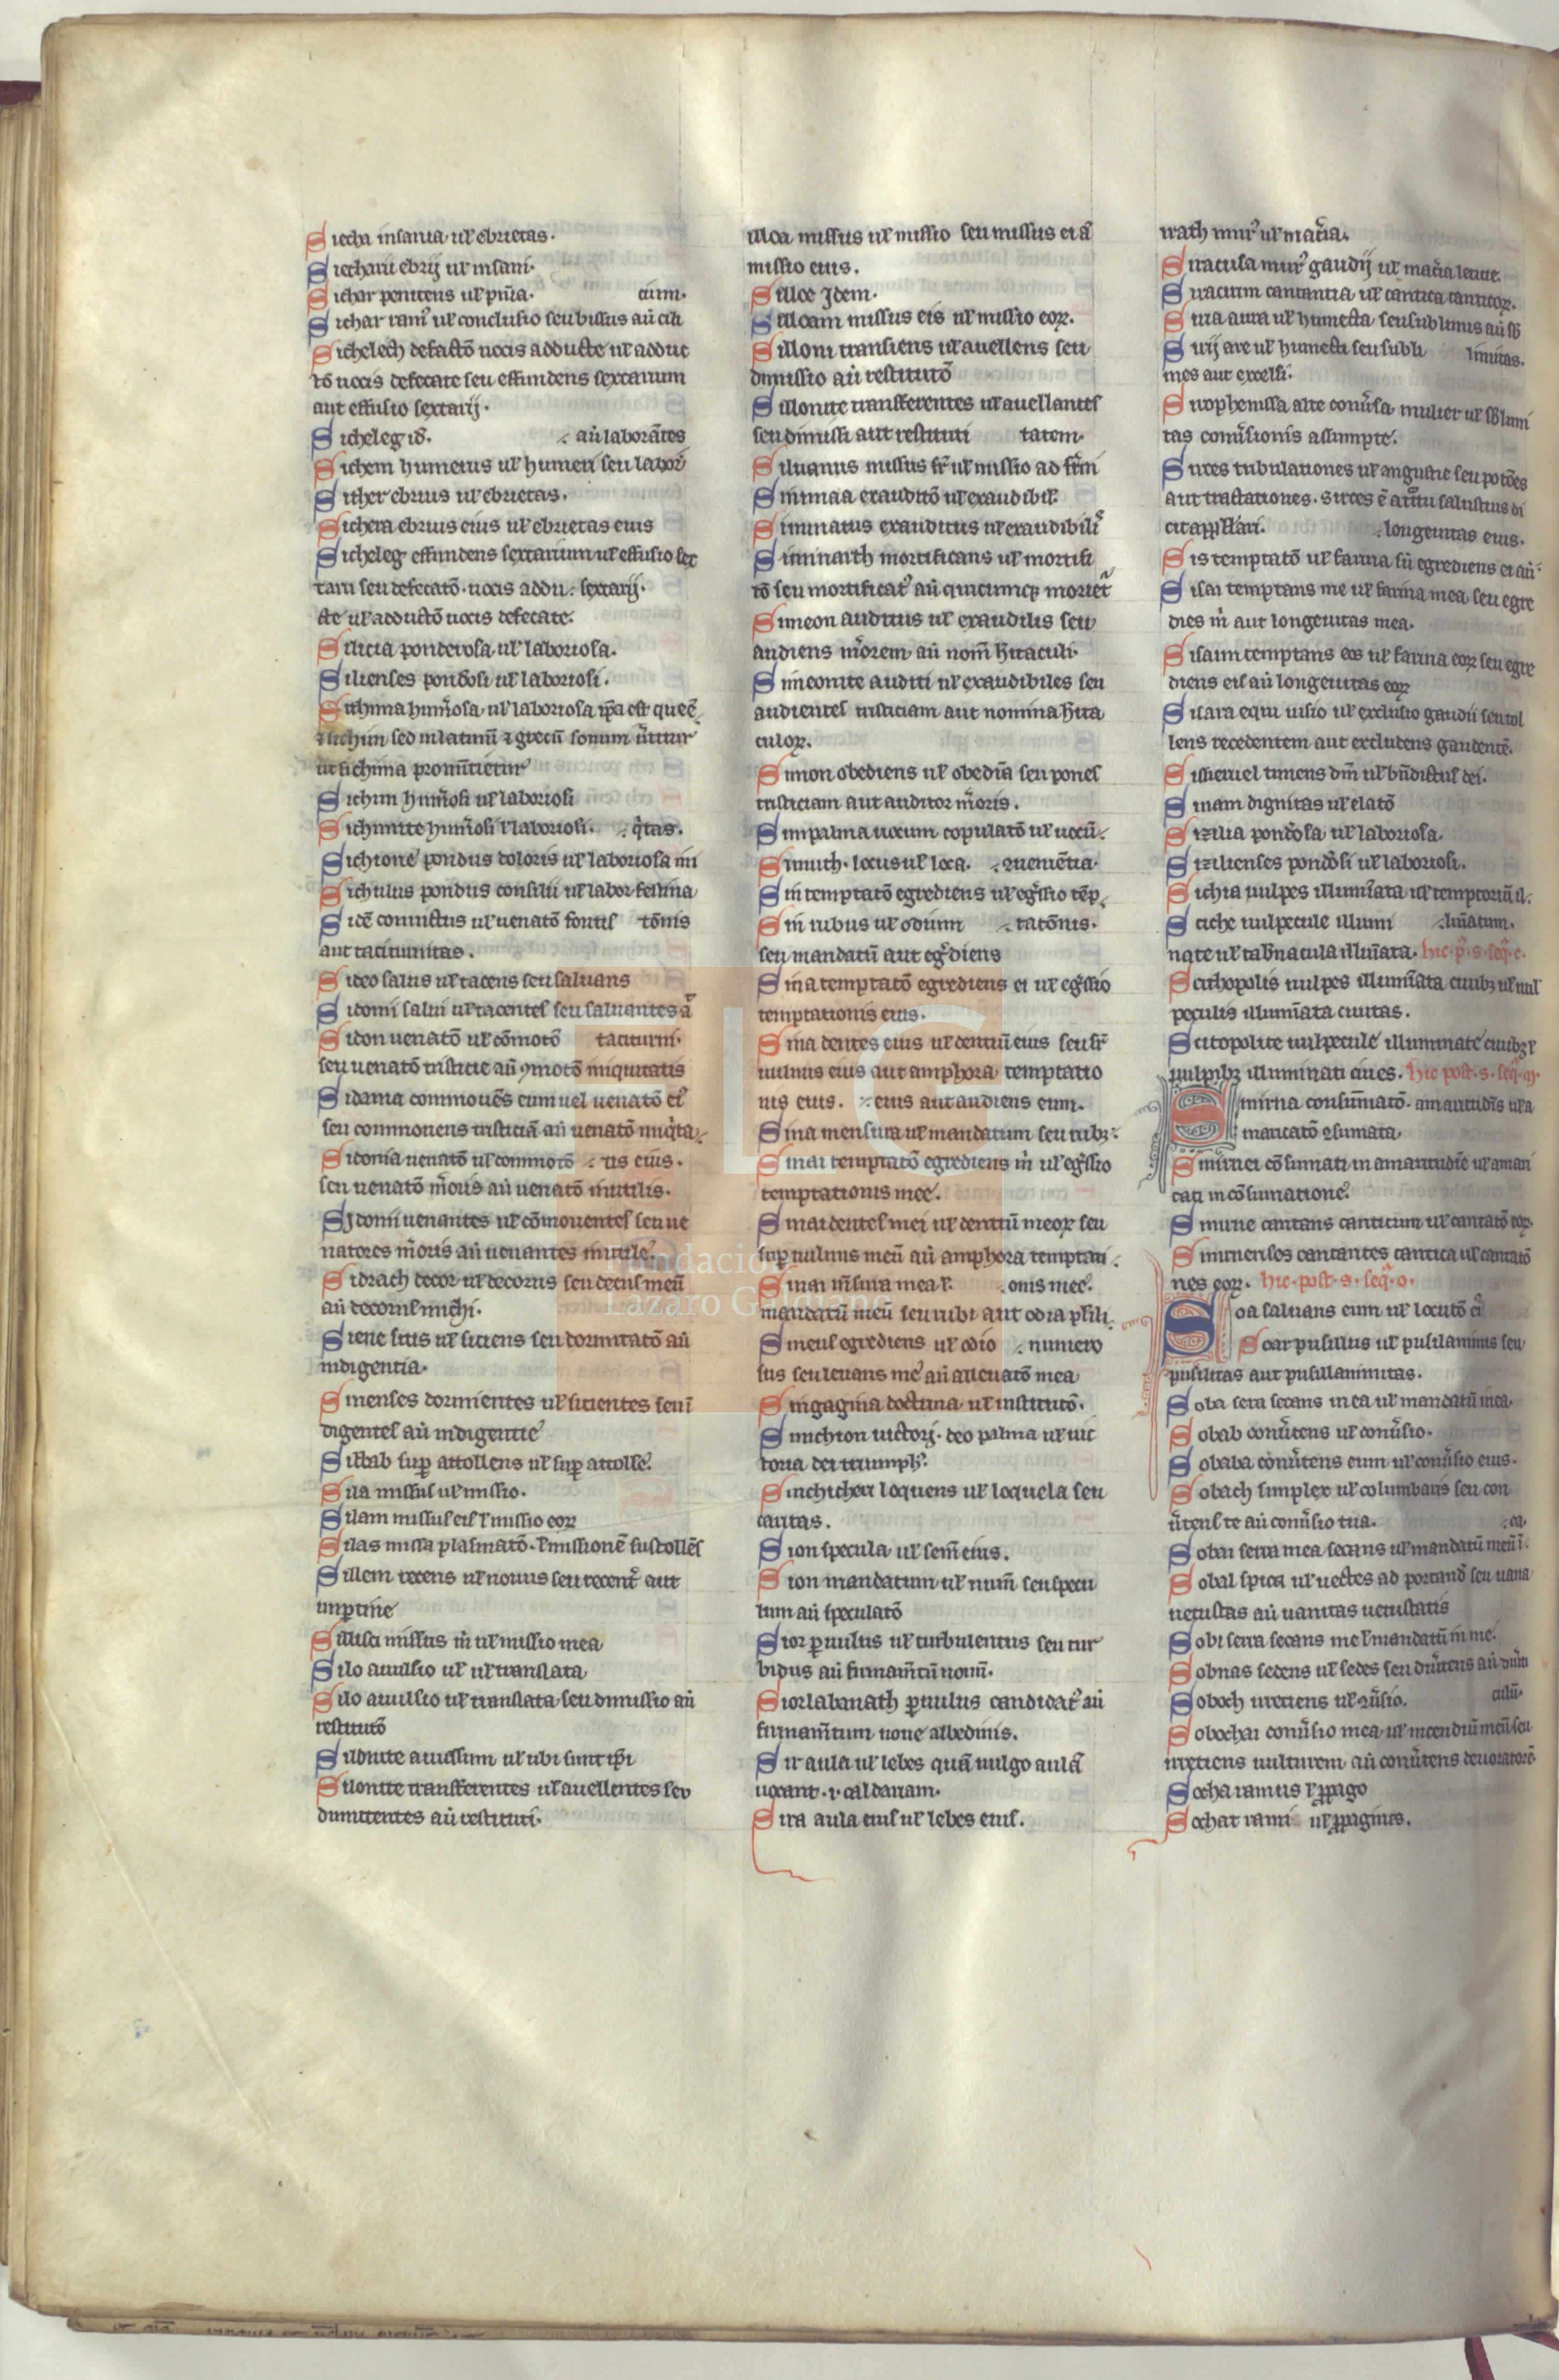 Siccha insania ul' ebrietas.
Sicharii ebrij ul' insani.
Sichar penitens ul' pnia. cium.
Sichar rami ul' conclusio seu bissus aū cili
Sichelech defectō uocis adducte ul' adduc
tō uocis defecate seu effundens sextarium
aut effusio sextarij.
Sicheleg id. aū laborātes
Sichem humerus ul' humeri seu labor
Sicher ebrius ul' ebrietas.
Sichera ebrius eius ul' ebrietas eius
Sicheleg effundens sextarium ul' effusio sex
tarii seu defecatō. uocis addu. sextarij.
cte ul' adductō uocis defecate.
Silicia ponderosa ul' laboriosa.
Silienses pondosi ul' laboriosi.
Sichima humosa ul' laboriosa ipa est que ē
sichim sed in latinū grecū sonum uertitur
ut sichima pronūtietur
Sichim humosi ul' laboriosi
Sichimite humosi l' laboriosi. qtas.
Sichione pondus doloris ul' laboriosa ini
Sichulus pondus consilii ul' labor festina
Sidē comnctus ul' uenatō fontis tōnis
aut taciturnitas.
Sideo salus ul' tacens seu saluans
Sidomi salui ul' tacentes seu saluantes a
Sidon uenatō ul' cōmotō taciturni.
seu uenatō tristicie aū 9motō iniquitatis
Sidama commouēs eum uel uenatō ei
seu commouens tristiciā aū uenatō iniqta
Sidonia uenatō ul' commotō tis eius.
seu uenatō meroris aū uenatō inutilis.
Sydonii uenantes ul' cōmouentes seu ue
natores meroris aū uenantes inutile.
Sidrach decor ul' decorus seu decus meū
aū decorus michi.
Siene sitis ul' siciens seu dormitatō aū
indigentia.
Sinenses dormientes ul' sicientes seu i
digentes aū indigentie
Sillab sup attollens ul' sup attolle.
Sila missus ul' missio.
Silam missus eis l' missio eor
Silas missa plasmatō. l' missionē sustollēs
Sillem recens ul' nouus seu recent aut
inptine
Sillisa missus m ul' missio mea
Silo auulsio ul' ul' translata
Silo auulsio ul' translata seu dimissio aū
restitutō
Silonite auulsum ul' ubi sunt ipi
Silonite transferentes ul' auellentes seu
dimittentes aū restituti.
illoa missus ul' missio seu missus ei a
missio eius.
Silloe Idem.
Silloam missus eis ul' missio eor.
Silloni transiens ul' auellens seu
dimissio aū restitutō
Sillonite transferentes ul' auellantes
seu dimissi aut restituti tatem.
Siluanus missus fr ul' missio ad frm
Simmaa exauditō ul' exaudibil.
Simmatus exauditus ul' exaudibili
Simmaith mortificans ul' mortifi
tō seu mortificat aū quicumque moriet
Simeon auditus ul' exaudilis seu
audiens merorem aū nom hitaculi
Simeonite auditi ul' exaudibiles seu
audientes tristiciam aut nomina hita
culor.
Simon obediens ul' obedia seu ponens
tristiciam aut auditor meroris.
Simpalma uocum copulatō ul' uocū
Simuth. locus ul' loca. 9uenientia.
Sin temptatō egrediens ul' egssio tēp
Sin rubus ul' odium tatōnis.
seu mandatū aut egdiens
Sina temptatō egrediens ei ul' egssio
temptationis eius.
Sina dentes eius ul' dentiū eius seu sr
uulnus eius aut amphora temptatio
nis eius. eius aut audiens eum.
Sina mensura ul' mandatum seu rubz
Sinai temptatō egrediens m ul' egssio
temptationis mee.
Sinai dentes mei ul' dentiū meor seu
sup uulnus meū aū amphora temptati
Sinai msura mea l' onis mee.
mandatū meū seu rubi aut odia pluri
Sineus egrediens ul' odio numero
sus seu leuans me aū alleuatō mea
Singagina doctrina ul' institutō.
Sinichion uictorj. deo palma ul' uic
toria dei triumph.
Sinchicheri loquens ul' loquela seu
caritas.
Sion specula ul' sem eius.
Sion mandatum ul' num seu specu
lum aū speculatō
Sior pauulus ul' turbulentus seu tur
bidus aū firmamtū noui.
Siorlabanath pauulus candidat aū
firmamtum noue albedinis.
Sir aula ul' lebes quā uulgo aulā
uocant. i. caldariam.
Sira aula eius ul' lebes eius.
Sirath mur ul' macia.
Siracusa mur gaudij ul' macia letitie.
Siracum cantantia ul' cantica cantitor.
Siria aura ul' humecta seu sublimis aū sb
Sirij are ul' humecti seu subli limitas.
mes aut excelsi.
Sirophenissa alte conusa mulier ul' sblimi
tas conusionis assumpte.
Sirtes tubulationes ul' angustie seu potōes
aut tractationes. sirtes ē a tractu salustius di
cit appellari. longeuitas eius.
Sis temptatō ul' farina su egrediens ei aū
Sisai temptans me ul' farina mea seu egre
dies m aut longeuitas mea.
Sisaim temptans eos ul' farina eor seu egre
diens eis aū longeuitas eor
Sisara equi uisio ul' exclusio gaudii seu tol
lens recedentem aut excludens gaudentē.
Sissieruel timens dm ul' bndictus dei.
Siuam dignitas ul' elatō
Sizilia pondosa ul' laboriosa.
Sizilienses pondosi ul' laboriosi.
Sichia uulpes illuminata ul' temptoriū il.
Sciche uulpecule illumi luiatum.
nate ul' tabnacula illuiata. hic p s. seq. c.
Scithopolis uulpes illuminata ciuibz ul' uul
peculis illuminata ciuitas.
Scitopolite uulpecule illuminate ciuibz l'
uulpibz illuminati ciues. hic post. s. seq. m.
Smirna consumatō. amaritudis ul' a
maricatō 9sumata
Smirnei cōsumati in amaritudie ul' amari
cati in cōsumatione.
Smirne cantans canticum ul' cantatō eor.
Smirnenses cantantes cantica ul' cantatō
nes eor. hic post. s. seq. o.
Soa saluans eum ul' locutō ei
Soar pusillus ul' pusilanimis seu
pusillitas aut pusillanimitas.
Soba sera secans in ea ul' mandatū in ea.
Sobab conutens ul' conusio.
Sobaba conutens eum ul' conusio eius.
Sobach simplex ul' columbaris seu con
utens te aū conusio tua. ea.
Sobai serra mea secans ul' mandatū meū i
Sobal spica ul' uectes ad portand seu uana
uetustas aū uanitas uetustatis
Sobi serra secans me l' mandatū in me.
Sobnas sedens ul' sedes seu
Soboch irretiens ul' 9usio.
Sobochai conusio mea ul' incendiū meū seu
irretiens uulturem aū conutens deuoratorē
Socha ramus l' ppago
Sochat rami ul' ppagines.